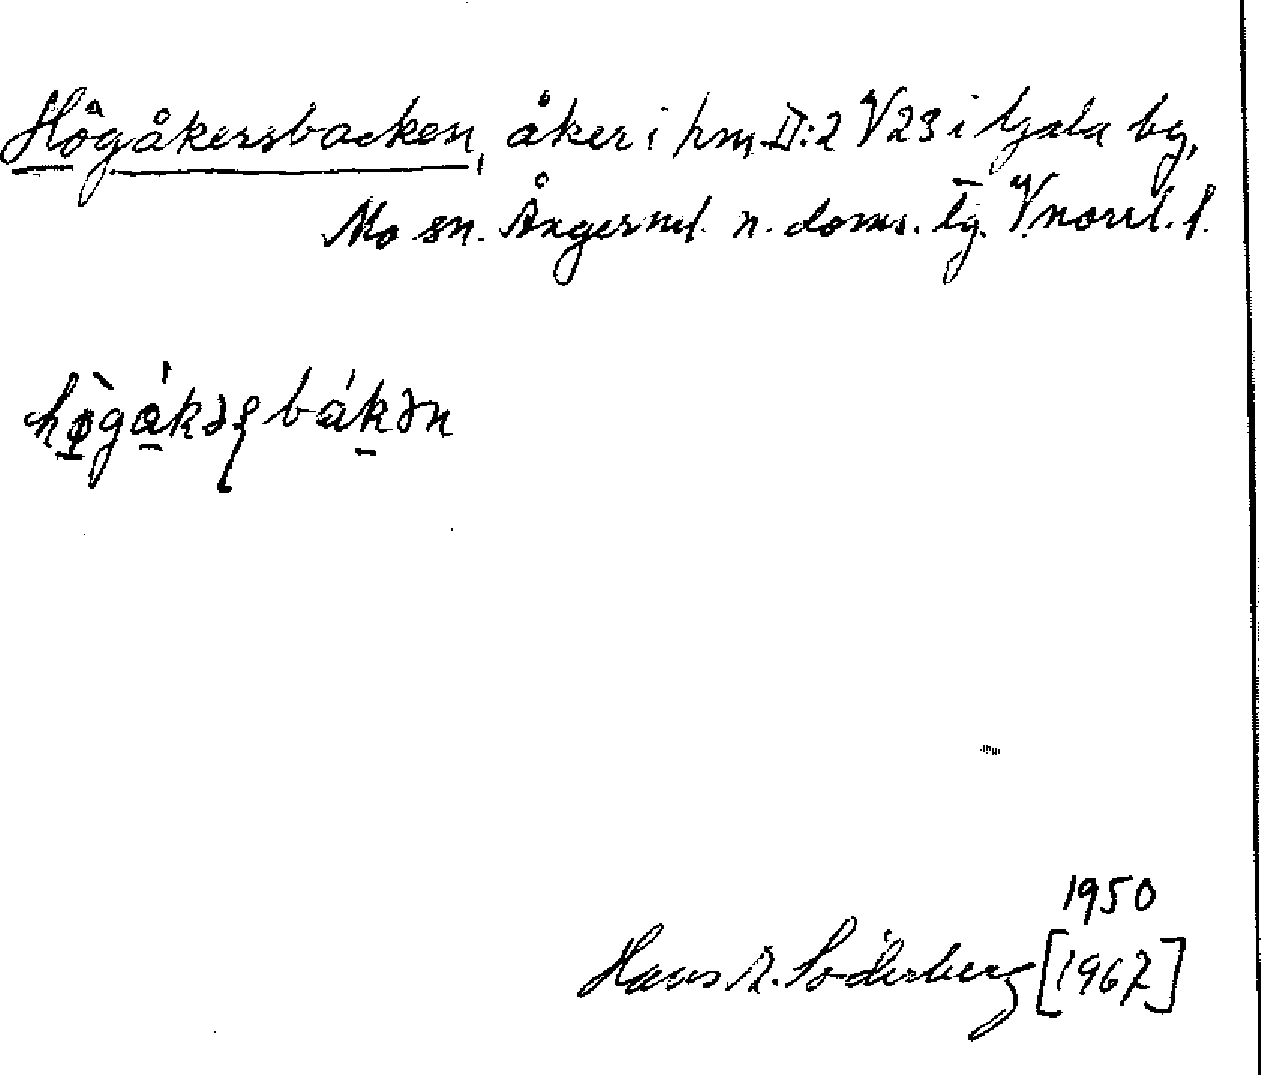 Högåkersbacken, åker i hm. D:2 V23 i Gala bg,
Mo sn. Ångerml. n. doms. lg. V.norrl. l.
hø̀gákəʂbákən
1950
Hans A. Söderberg [1967]